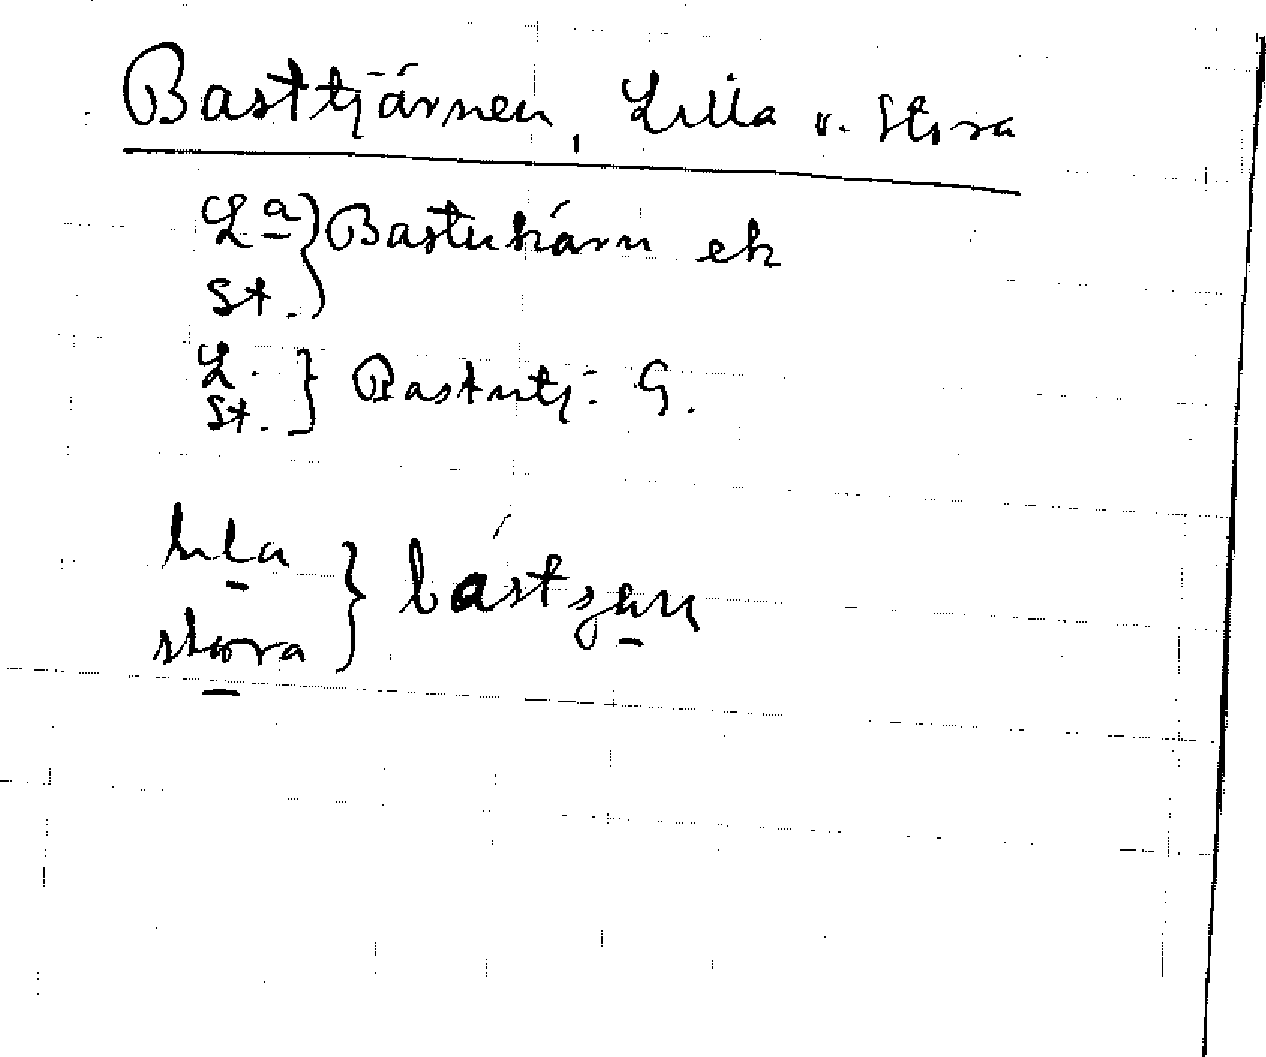 Basttjärnen, Lilla o. Stora
L<u>a</u> } Bastukärn ek
St. }
L. } Bastutj: G.
St. }
lilla } bástȷa̱n
stora }